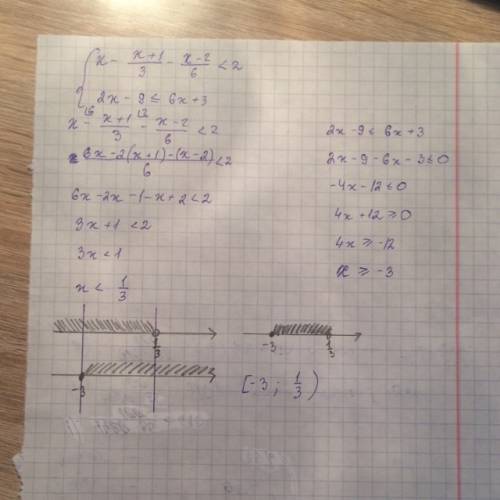 { x - (x+1)/3 - (x-2)/6 < 2
2x - 9 ≤ 6x + 3
x - (x+1)/3 - (x-2)/6 < 2
(6x - 2(x+1) - (x-2))/6 < 2
6x - 2x - 1 - x + 2 < 2
3x + 1 < 2
3x < 1
x < 1/3
2x - 9 ≤ 6x + 3
2x - 9 - 6x - 3 ≤ 0
-4x - 12 ≤ 0
4x + 12 ≥ 0
4x ≥ -12
x ≥ -3
1/3
-3
-3 1/3
[-3; 1/3)